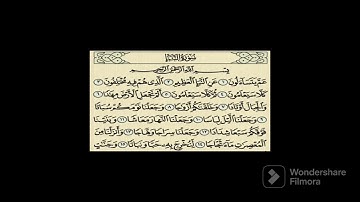 سُورَةُ النَّبَإِ
بِسْمِ اللَّهِ الرَّحْمَٰنِ الرَّحِيمِ
عَمَّ يَتَسَاءَلُونَ ١ عَنِ النَّبَإِ الْعَظِيمِ ٢ الَّذِي هُمْ فِيهِ مُخْتَلِفُونَ ٣
كَلَّا سَيَعْلَمُونَ ٤ ثُمَّ كَلَّا سَيَعْلَمُونَ ٥ أَلَمْ نَجْعَلِ الْأَرْضَ مِهَادًا ٦
وَالْجِبَالَ أَوْتَادًا ٧ وَخَلَقْنَاكُمْ أَزْوَاجًا ٨ وَجَعَلْنَا نَوْمَكُمْ سُبَاتًا
٩ وَجَعَلْنَا اللَّيْلَ لِبَاسًا ١٠ وَجَعَلْنَا النَّهَارَ مَعَاشًا ١١ وَبَنَيْنَا
فَوْقَكُمْ سَبْعًا شِدَادًا ١٢ وَجَعَلْنَا سِرَاجًا وَهَّاجًا ١٣ وَأَنْزَلْنَا مِنَ
الْمُعْصِرَاتِ مَاءً ثَجَّاجًا ١٤ لِنُخْرِجَ بِهِ حَبًّا وَنَبَاتًا ١٥ وَجَنَّاتٍ
Wondershare
Filmora